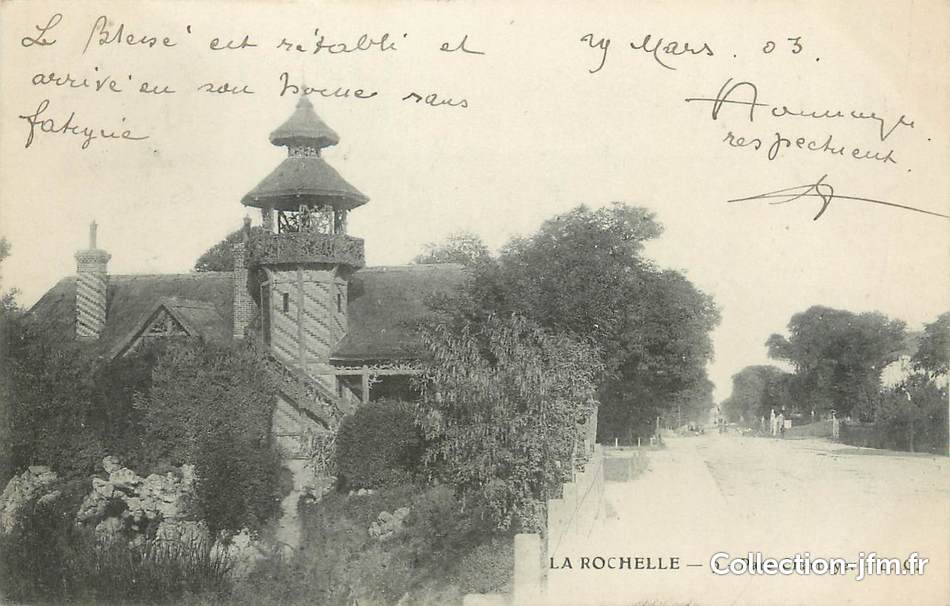 Le Blessé est rétabli et
arrivé en son home sans
fatigue
29 Mars . 03.
Hommage
respectueux
LA ROCHELLE —
Collection-jfm.fr